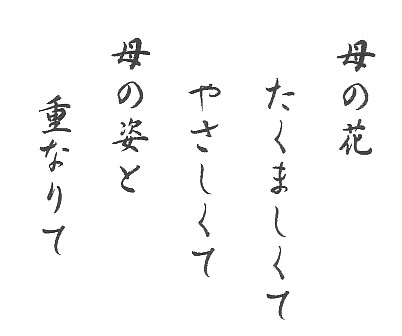 母の花
たくましくて
やさしくて
母の姿と
重なりて